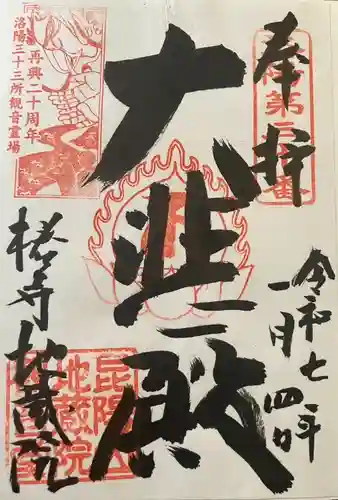 奉拝
令和七年
一月四日
大悲殿
椿寺地蔵院
再興二十周年
洛陽三十三所観音霊場
昆陽山
地蔵院